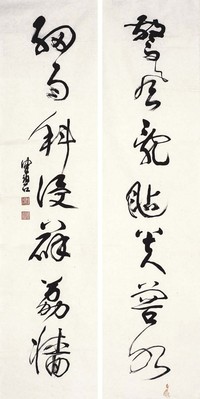 驚風亂颭芙蓉水
細雨斜侵薜荔牆